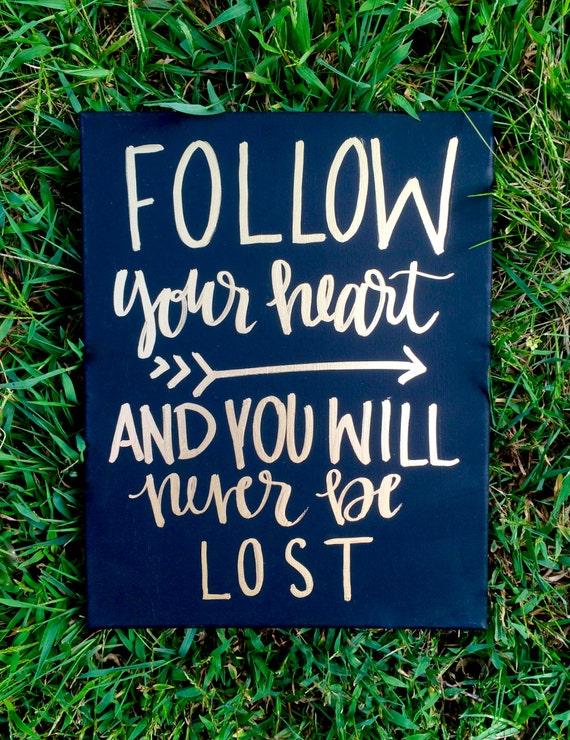 FOLLOW
your heart
AND YOU WILL
never be
LOST